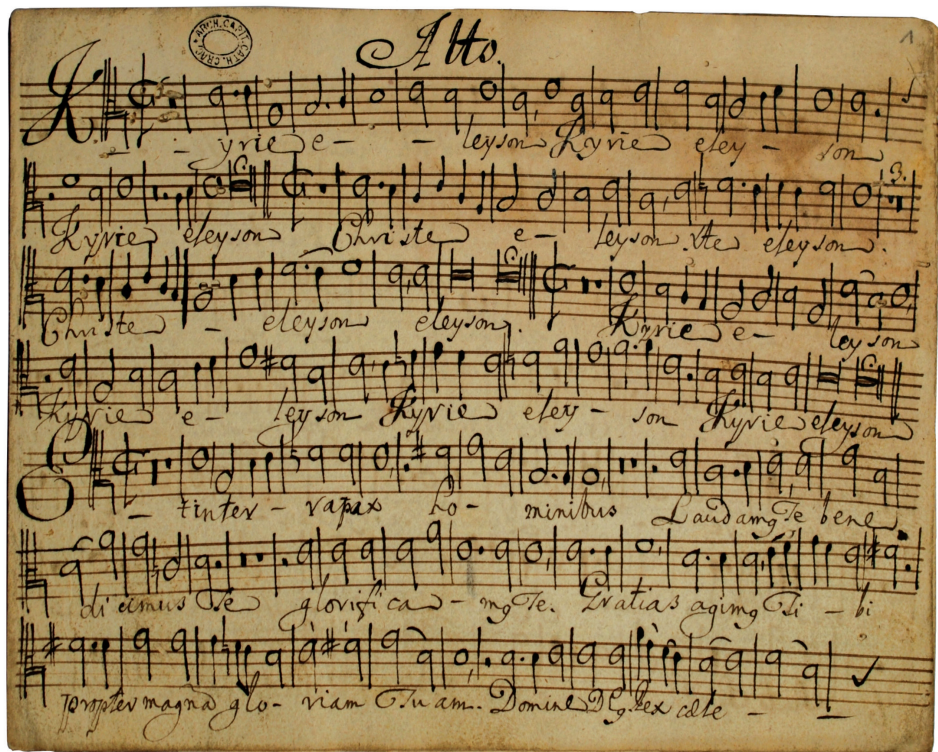 ARCH. CAPIT. CATH. CRAC.
Alto.
1
Kyrie e - - leyson Kyrie eley - son
3.
Kyrie eleyson Christe e - leyson. Xte eleyson.
Christe - eleyson eleyson. Kyrie e - leyson
Kyrie e - leyson Kyrie eley - son Kyrie eleyson
Et inter - ra pax ho - minibus Laudamg Te bene
dicimus Te glorifica - mg Te. Gratias agimg Ti - bi
propter magna glo - riam Tuam. Domine Dg Rex cæle - -